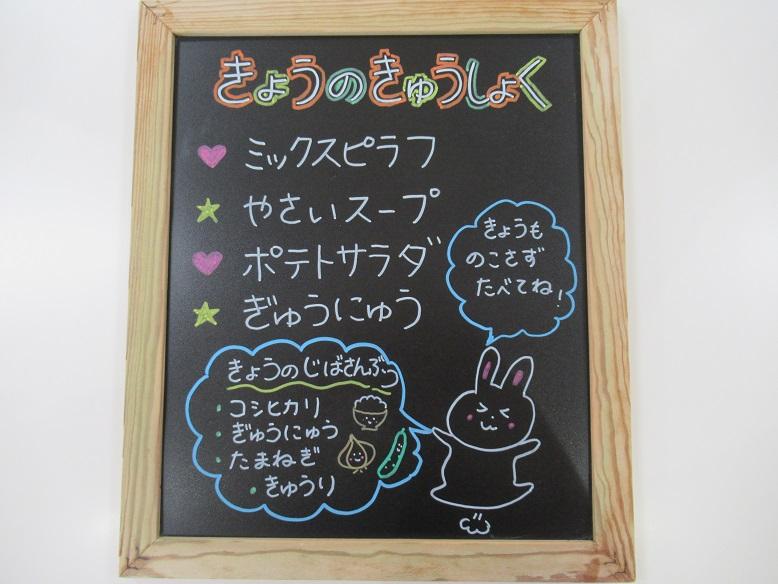 きょうのきゅうしょく
ミックスピラフ
やさいスープ
ポテトサラダ
ぎゅうにゅう
きょうも
のこさず
たべてね!
きょうのじばさんぶつ
・コシヒカリ
・ぎゅうにゅう
・たまねぎ
・きゅうり